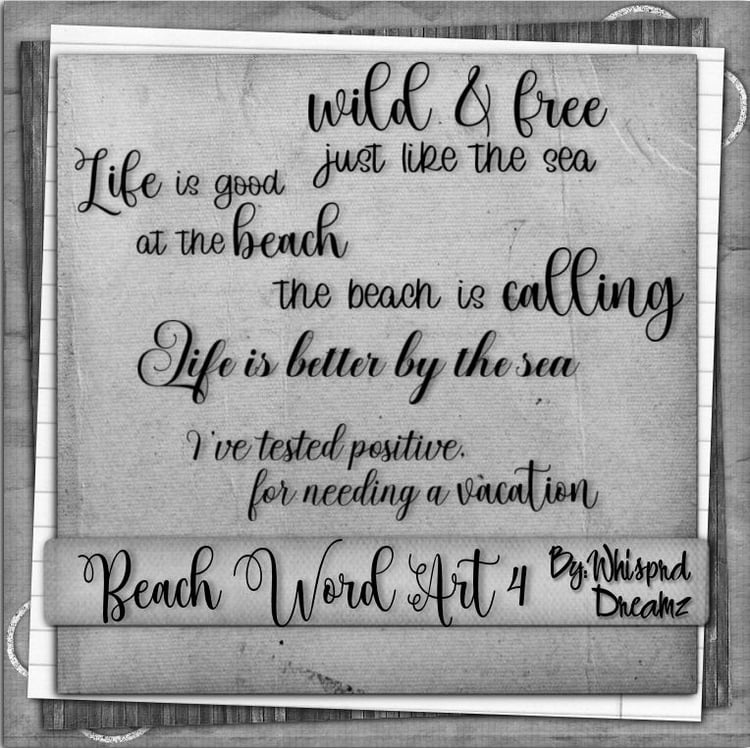 wild & free
just like the sea
Life is good
at the beach
the beach is calling
Life is better by the sea
I've tested positive.
for needing a vacation
Beach Word Art 4
By: Whisprd
Dreamz